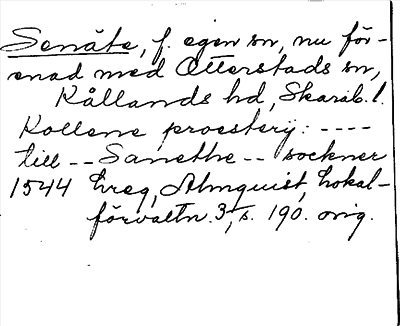 Senäte, f. egen sn, nu för-
enad med Otterstads sn,
Kållands hd, Skarab. l.
Kollene proesterij: ----
till -- Sanethe -- sockner
1544 hreg, Almquist, Lokal-
förvaltn. 3, s. 190. orig.